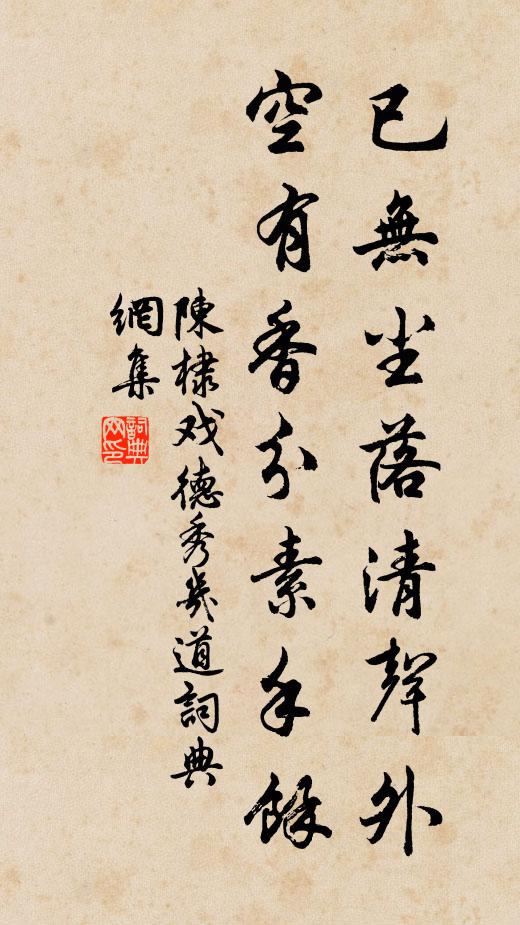 已無尘落清聲外
空有香分素手餘
陳棣戏德秀幾道詞典
網集
詞典
网印